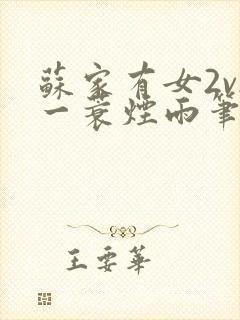 蘇家有女2v
一蓑煙雨筆
王要華